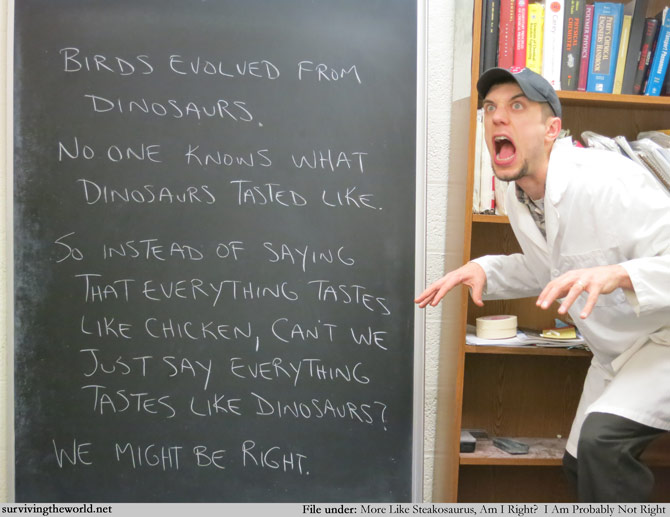 BIRDS EVOLVED FROM
DINOSAURS.
NO ONE KNOWS WHAT
DINOSAURS TASTED LIKE.
SO INSTEAD OF SAYING
THAT EVERYTHING TASTES
LIKE CHICKEN, CAN'T WE
JUST SAY EVERYTHING
TASTES LIKE DINOSAURS?
WE MIGHT BE RIGHT.
PERRY'S CHEMICAL ENGINEERS' HANDBOOK
Carey
PHYSICAL CHEMISTRY
POLYMER PHYSICS
survivingtheworld.net
File under: More Like Steakosaurus, Am I Right? I Am Probably Not Right